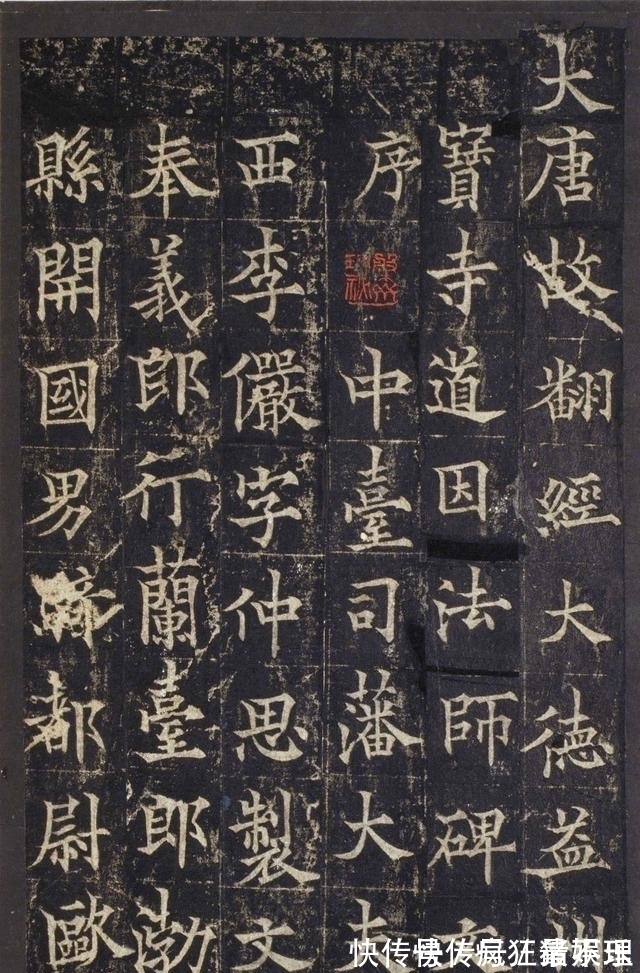 大唐故翻經大德益州
寶寺道因法師碑文
序 中臺司藩大
西李儼字仲思製文
奉義郎行蘭臺郎渤
縣開國男騎都尉歐
快传